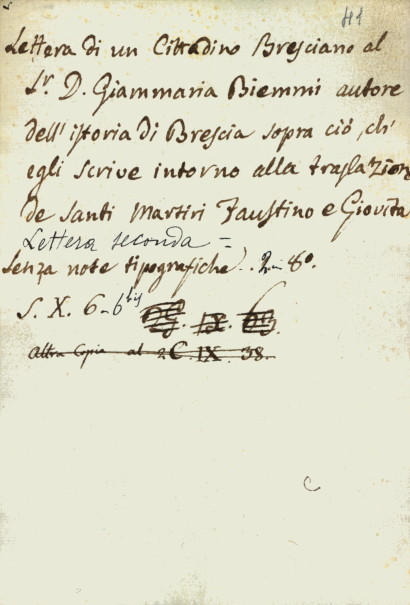 41
Lettera di un Cittadino Bresciano al
Sr. D. Giammaria Biemmi autore
dell'istoria di Brescia sopra ciò, ch'
egli scrive intorno alla traslazion
de Santi Martiri Faustino e Giovita
Lettera seconda =
Senza note tipografiche) .. 2 in 8o.
S. X. 6-6 bis
IX.
Altra Copia al 2. C. IX. 38.
C